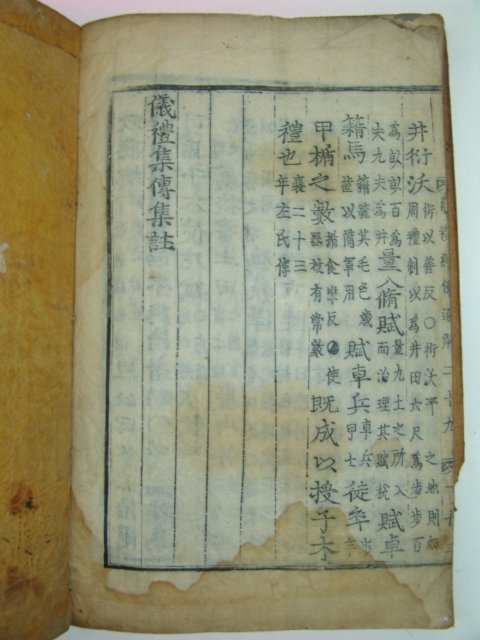 井衍沃衍以善反○衍沃平美之地則如
周禮制以為井田六尺為步步百
為畝畝百為
夫九夫為井量入脩賦量九土之所入
而治理其賦稅賦車
籍馬籍疏其毛色歲
齒以備軍用賦車兵車兵
甲士徒卒步
甲楯之數楯食準反○使
器杖有常數既成以授子木
禮也襄二十三
年左氏傳
儀禮集傳集註